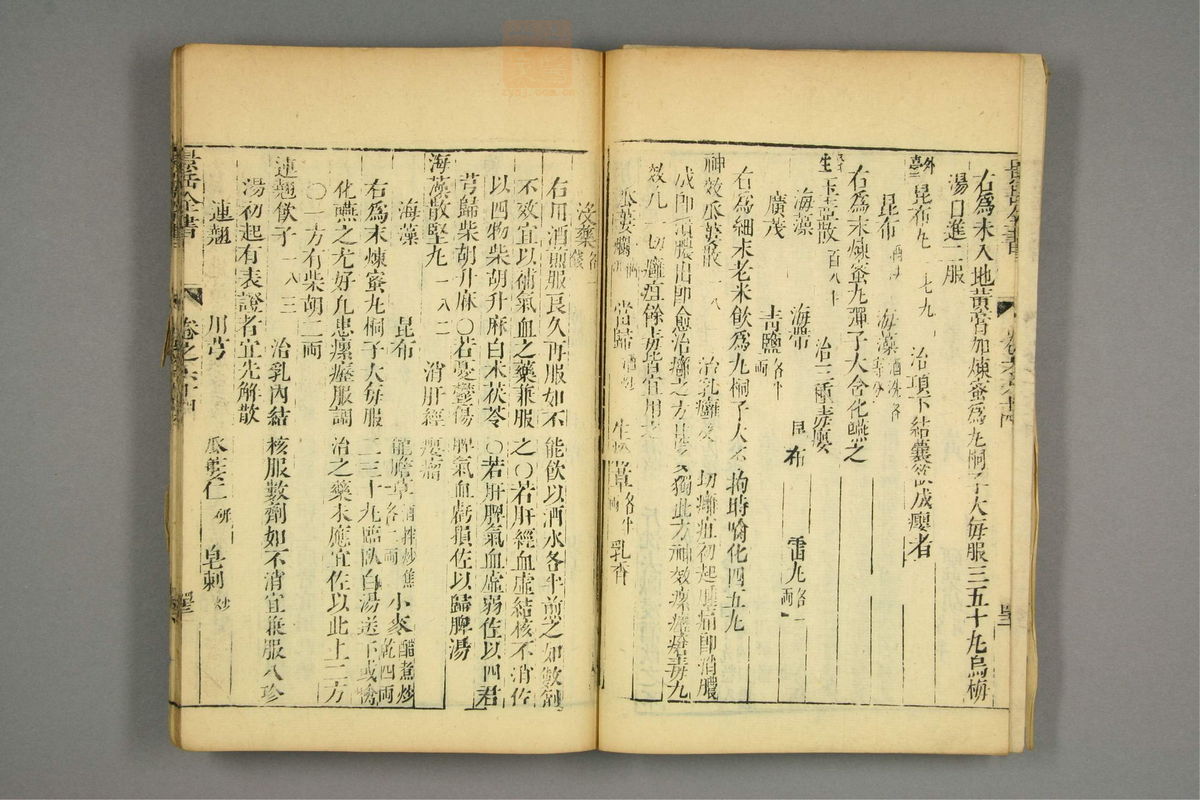 右為末入地黃膏加煉蜜為丸桐子大每服三五十丸烏梅
湯日進二服
外臺昆布丸 一七九 治項下結囊欲成癭者
昆布 海藻 酒洗各等分
右為末煉蜜丸彈子大含化嚥之
玉壺散 百八十 治三種毒癭
海藻 海帶 昆布 雷丸各一兩
廣茂 青鹽各半兩
右為細末老米飲為丸桐子大不拘時噙化四五丸
神效瓜蔞散 一八 治乳癰及一切癰疽初起腫痛即消膿
成即潰膿出即愈治癰之方甚多獨此方神效瘰癧瘡毒尤
效凡一切癰疽餘毒皆宜用之
瓜蔞 當歸 生草各半兩 乳香
沒藥各一錢
右用酒煎服良久再服如不能飲以酒水各半煎之如數劑
不效宜以補氣血之藥兼服之○若肝經血虛結核不消佐
以四物柴胡升麻白朮茯苓○若肝脾氣血虛弱佐以四君
芎歸柴胡升麻○若憂鬱傷脾氣血虧損佐以歸脾湯
海藻散堅丸 一八二 消肝經癭瘤
海藻 昆布 龍膽草酒拌炒焦各二兩 小麥醋煮炒乾四兩
右為末煉蜜丸桐子大每服二三十丸臨臥白湯送下或噙
化嚥之尤好凡患瘰癧服調治之藥未應宜佐以此上二方
○一方有柴胡二兩
連翹飲子 一八三 治乳內結核服數劑如不消宜兼服八珍
湯初起有表證者宜先解散
連翹 川芎 瓜蔞仁研 皂刺炒
景岳全書
卷之六十四